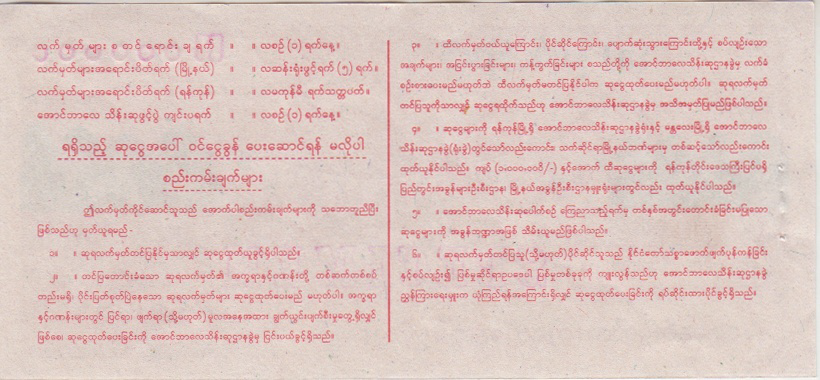 လက် မှတ် များ စ တင် ရောင်း ချ ရက် ။ ။ လစဉ် (၁) ရက်နေ့။
လက်မှတ်များအရောင်းပိတ်ရက် (မြို့နယ်) ။ ။ လဆန်းရုံးဖွင့်ရက် (၅) ရက်။
လက်မှတ်များအရောင်းပိတ်ရက် (ရန်ကုန်) ။ ။ လမကုန်မီ ရက်သတ္တပတ်။
အောင်ဘာလေ သိန်းဆုဖွင့်ပွဲ ကျင်းပရက် ။ ။ လစဉ် (၁) ရက်နေ့။
ရရှိသည့် ဆုငွေအပေါ် ဝင်ငွေခွန် ပေးဆောင်ရန် မလိုပါ
စည်းကမ်းချက်များ
ဤလက်မှတ်ကိုင်ဆောင်သူသည် အောက်ပါစည်းကမ်းချက်များကို သဘောတူညီပြီး
ဖြစ်သည်ဟု မှတ်ယူရမည် -
၁။ ။ ဆုရလက်မှတ်တင်ပြနိုင်မှသာလျှင် ဆုငွေထုတ်ယူခွင့်ရှိပါသည်။
၂။ ။ တင်ပြတောင်းခံသော ဆုရလက်မှတ်၏ အက္ခရာနှင့်ဂဏန်းတို့ တစ်ဆက်တစ်စပ်
တည်းမရှိ၊ ပိုင်းပြတ်စုတ်ပြဲနေသော ဆုရလက်မှတ်များ ဆုငွေထုတ်ပေးမည် မဟုတ်ပါ။ အက္ခရာ
နှင့်ဂဏန်းများတွင် ပြင်ရာ၊ ဖျက်ရာ(သို့မဟုတ်) မူလအနေအထား ချွတ်ယွင်းပျက်စီးမှုတွေ့ရှိလျှင်
ဖြစ်စေ၊ ဆုငွေထုတ်ပေးခြင်းကို အောင်ဘာလေသိန်းဆုဌာနခွဲမှ ငြင်းပယ်ခွင့်ရှိသည်။
၃။ ။ ထီလက်မှတ်ဝယ်ယူကြောင်း၊ ပိုင်ဆိုင်ကြောင်း၊ ပျောက်ဆုံးသွားကြောင်းတို့နှင့် စပ်လျဉ်းသော
အချက်များ၊ အငြင်းပွားခြင်းများ၊ ကန့်ကွက်ခြင်းများ စသည်တို့ကို အောင်ဘာလေသိန်းဆုဌာနခွဲမှ လက်ခံ
စဉ်းစားပေးမည်မဟုတ်ဘဲ ထီလက်မှတ်မတင်ပြနိုင်ပါက ဆုငွေထုတ်ပေးမည်မဟုတ်ပါ။ ဆုရလက်မှတ်
တင်ပြသူကိုသာလျှင် ဆုငွေရထိုက်သည်ဟု အောင်ဘာလေသိန်းဆုဌာနခွဲမှ အသိအမှတ်ပြုမည်ဖြစ်ပါသည်။
၄။ ။ ဆုငွေများကို ရန်ကုန်မြို့ရှိ အောင်ဘာလေသိန်းဆုဌာနခွဲရုံးနှင့် မန္တလေးမြို့ရှိ အောင်ဘာလေ
သိန်းဆုဌာနခွဲ(ရုံးခွဲ)တွင်သော်လည်းကောင်း၊ သက်ဆိုင်ရာမြို့နယ်ဘဏ်များမှ တစ်ဆင့်သော်လည်းကောင်း
ထုတ်ယူနိုင်ပါသည်။ ကျပ် (၁,၀၀၀,၀၀၀ိ/-) နှင့်အောက် ထီဆုငွေများကို ရန်ကုန်တိုင်းဒေသကြီးပြင်ပရှိ
ပြည်တွင်းအခွန်များဦးစီးဌာန၊ မြို့နယ်အခွန်ဦးစီးဌာနမှူးရုံးများတွင်လည်း ထုတ်ယူနိုင်ပါသည်။
၅။ ။ အောင်ဘာလေသိန်းဆုပေါက်စဉ် ကြေညာသည့်ရက်မှ တစ်နှစ်အတွင်းတောင်းခံခြင်းမပြုသော
ဆုငွေများကို အခွန်ဘဏ္ဍာအဖြစ် သိမ်းယူမည်ဖြစ်ပါသည်။
၆။ ။ ဆုရလက်မှတ်တင်ပြသူ(သို့မဟုတ်)ပိုင်ဆိုင်သူသည် နိုင်ငံတော်သစ္စာဖောက်ဖျက်ပုန်ကန်ခြင်း
နှင့်စပ်လျဉ်း၍ ပြစ်မှုဆိုင်ရာဥပဒေပါ ပြစ်မှုတစ်ခုခုကို ကျူးလွန်သည်ဟု အောင်ဘာလေသိန်းဆုဌာနခွဲ
ညွှန်ကြားရေးမှူးက ယုံကြည်ရန်အကြောင်းရှိလျှင် ဆုငွေထုတ်ပေးခြင်းကို ရပ်ဆိုင်းထားပိုင်ခွင့်ရှိသည်။